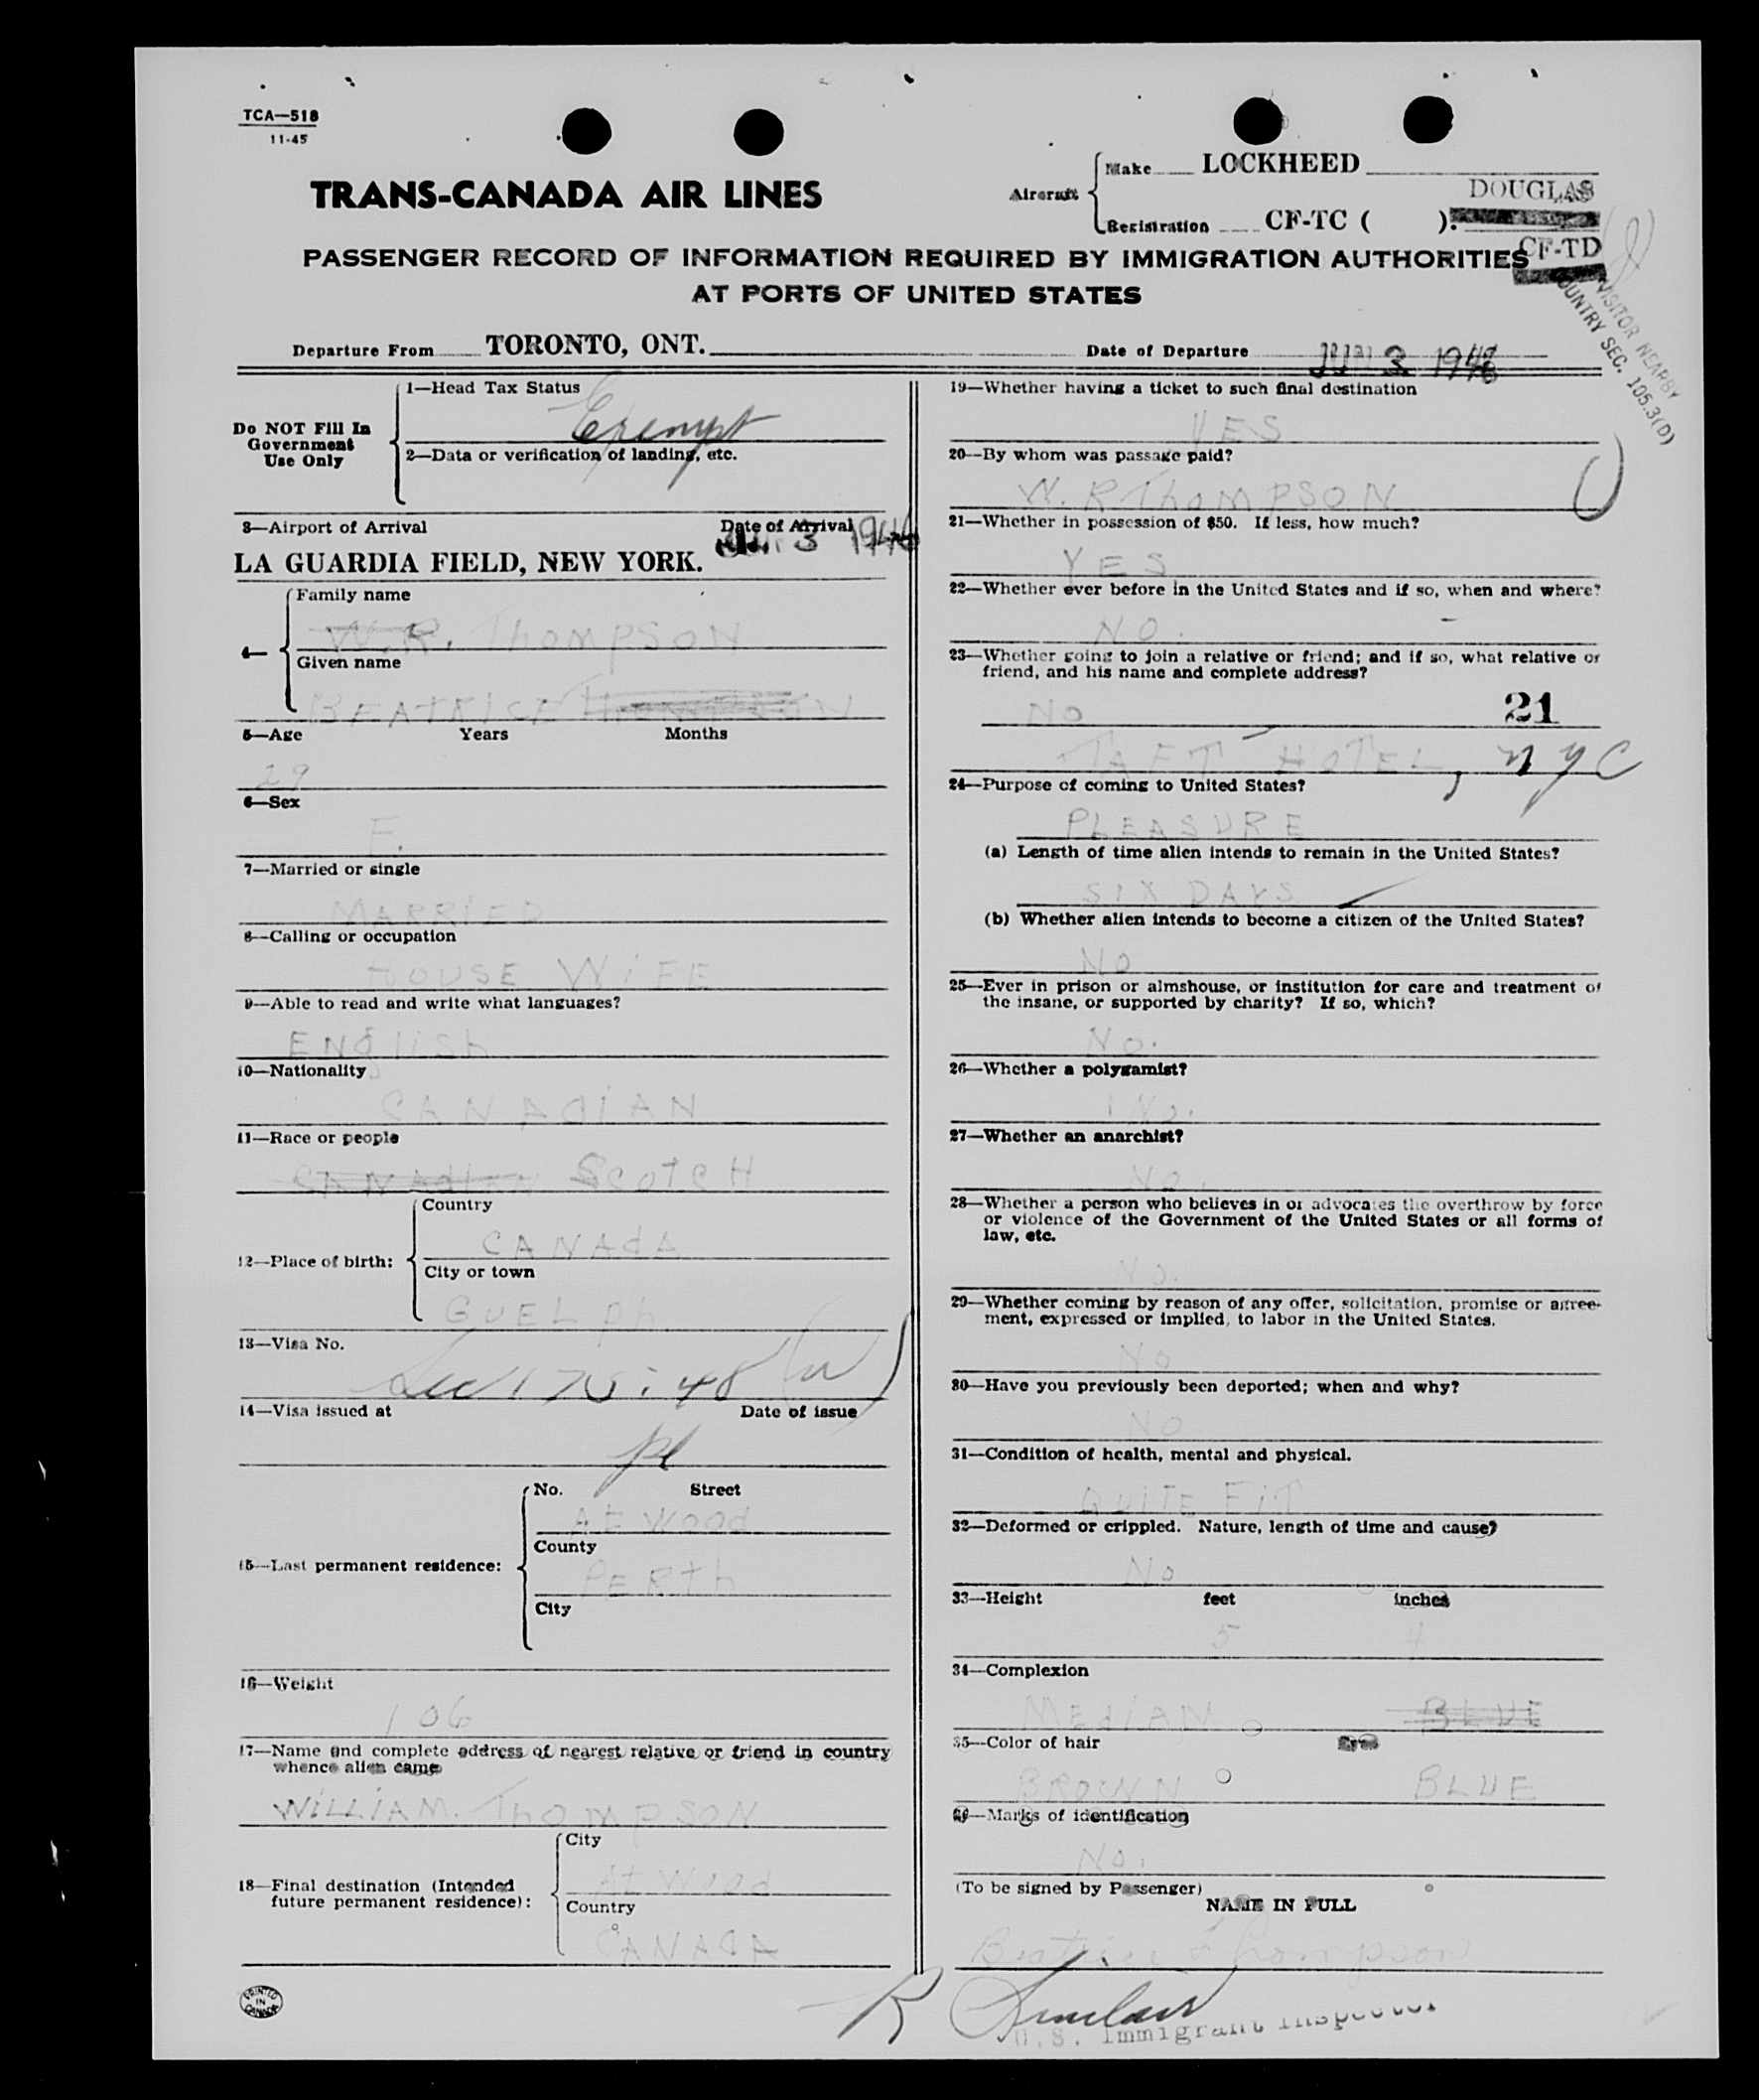 TCA—518
11-45
TRANS-CANADA AIR LINES
Aircraft
Make LOCKHEED
DOUGLAS
Registration CF-TC ( ).
CF-TD
PASSENGER RECORD OF INFORMATION REQUIRED BY IMMIGRATION AUTHORITIES
AT PORTS OF UNITED STATES
VISITOR NEARBY
COUNTRY SEC. 105.3(D)
Departure From TORONTO, ONT.
Date of Departure 3 1946
Do NOT Fill In
Government
Use Only
1—Head Tax Status
Exempt
2—Data or verification of landing, etc.
3—Airport of Arrival Date of Arrival
LA GUARDIA FIELD, NEW YORK. 3 1946
4—
Family name
W.R. THOMPSON
Given name
BEATRICE THOMPSON
5—Age Years Months
29
6—Sex
F.
7—Married or single
MARRIED
8—Calling or occupation
HOUSE WIFE
9—Able to read and write what languages?
ENGlish
10—Nationality
CANADIAN
11—Race or people
CANADIAN SCOTCH
12—Place of birth:
Country
CANADA
City or town
GUELph
13—Visa No.
14—Visa issued at Date of issue
15—Last permanent residence:
No. Street
At wood
County
PERth
City
16—Weight
106
17—Name and complete address of nearest relative or friend in country
whence alien came
WILLIAM. THOMPSON
18—Final destination (Intended
future permanent residence):
City
At Wood
Country
CANADA
PRINTED
IN
CANADA
19—Whether having a ticket to such final destination
YES
20—By whom was passage paid?
W. R THOMPSON
21—Whether in possession of $50. If less, how much?
YES
22—Whether ever before in the United States and if so, when and where?
NO.
23—Whether going to join a relative or friend; and if so, what relative or
friend, and his name and complete address?
No 21
TAFT HOTEL, NYC
24—Purpose of coming to United States?
PLEASURE
(a) Length of time alien intends to remain in the United States?
SIX DAYS
(b) Whether alien intends to become a citizen of the United States?
NO
25—Ever in prison or almshouse, or institution for care and treatment of
the insane, or supported by charity? If so, which?
No.
26—Whether a polygamist?
No.
27—Whether an anarchist?
No.
28—Whether a person who believes in or advocates the overthrow by force
or violence of the Government of the United States or all forms of
law, etc.
No.
29—Whether coming by reason of any offer, solicitation, promise or agree-
ment, expressed or implied, to labor in the United States.
No
30—Have you previously been deported; when and why?
NO
31—Condition of health, mental and physical.
QUITE FIT
32—Deformed or crippled. Nature, length of time and cause?
No
33—Height feet inches
5 4
34—Complexion
MEDIAN BLUE
35—Color of hair Eyes
BROWN BLUE
36—Marks of identification
No.
(To be signed by Passenger)
NAME IN FULL
Beatrice Thompson
R Sinclair
U.S. Immigrant Inspector